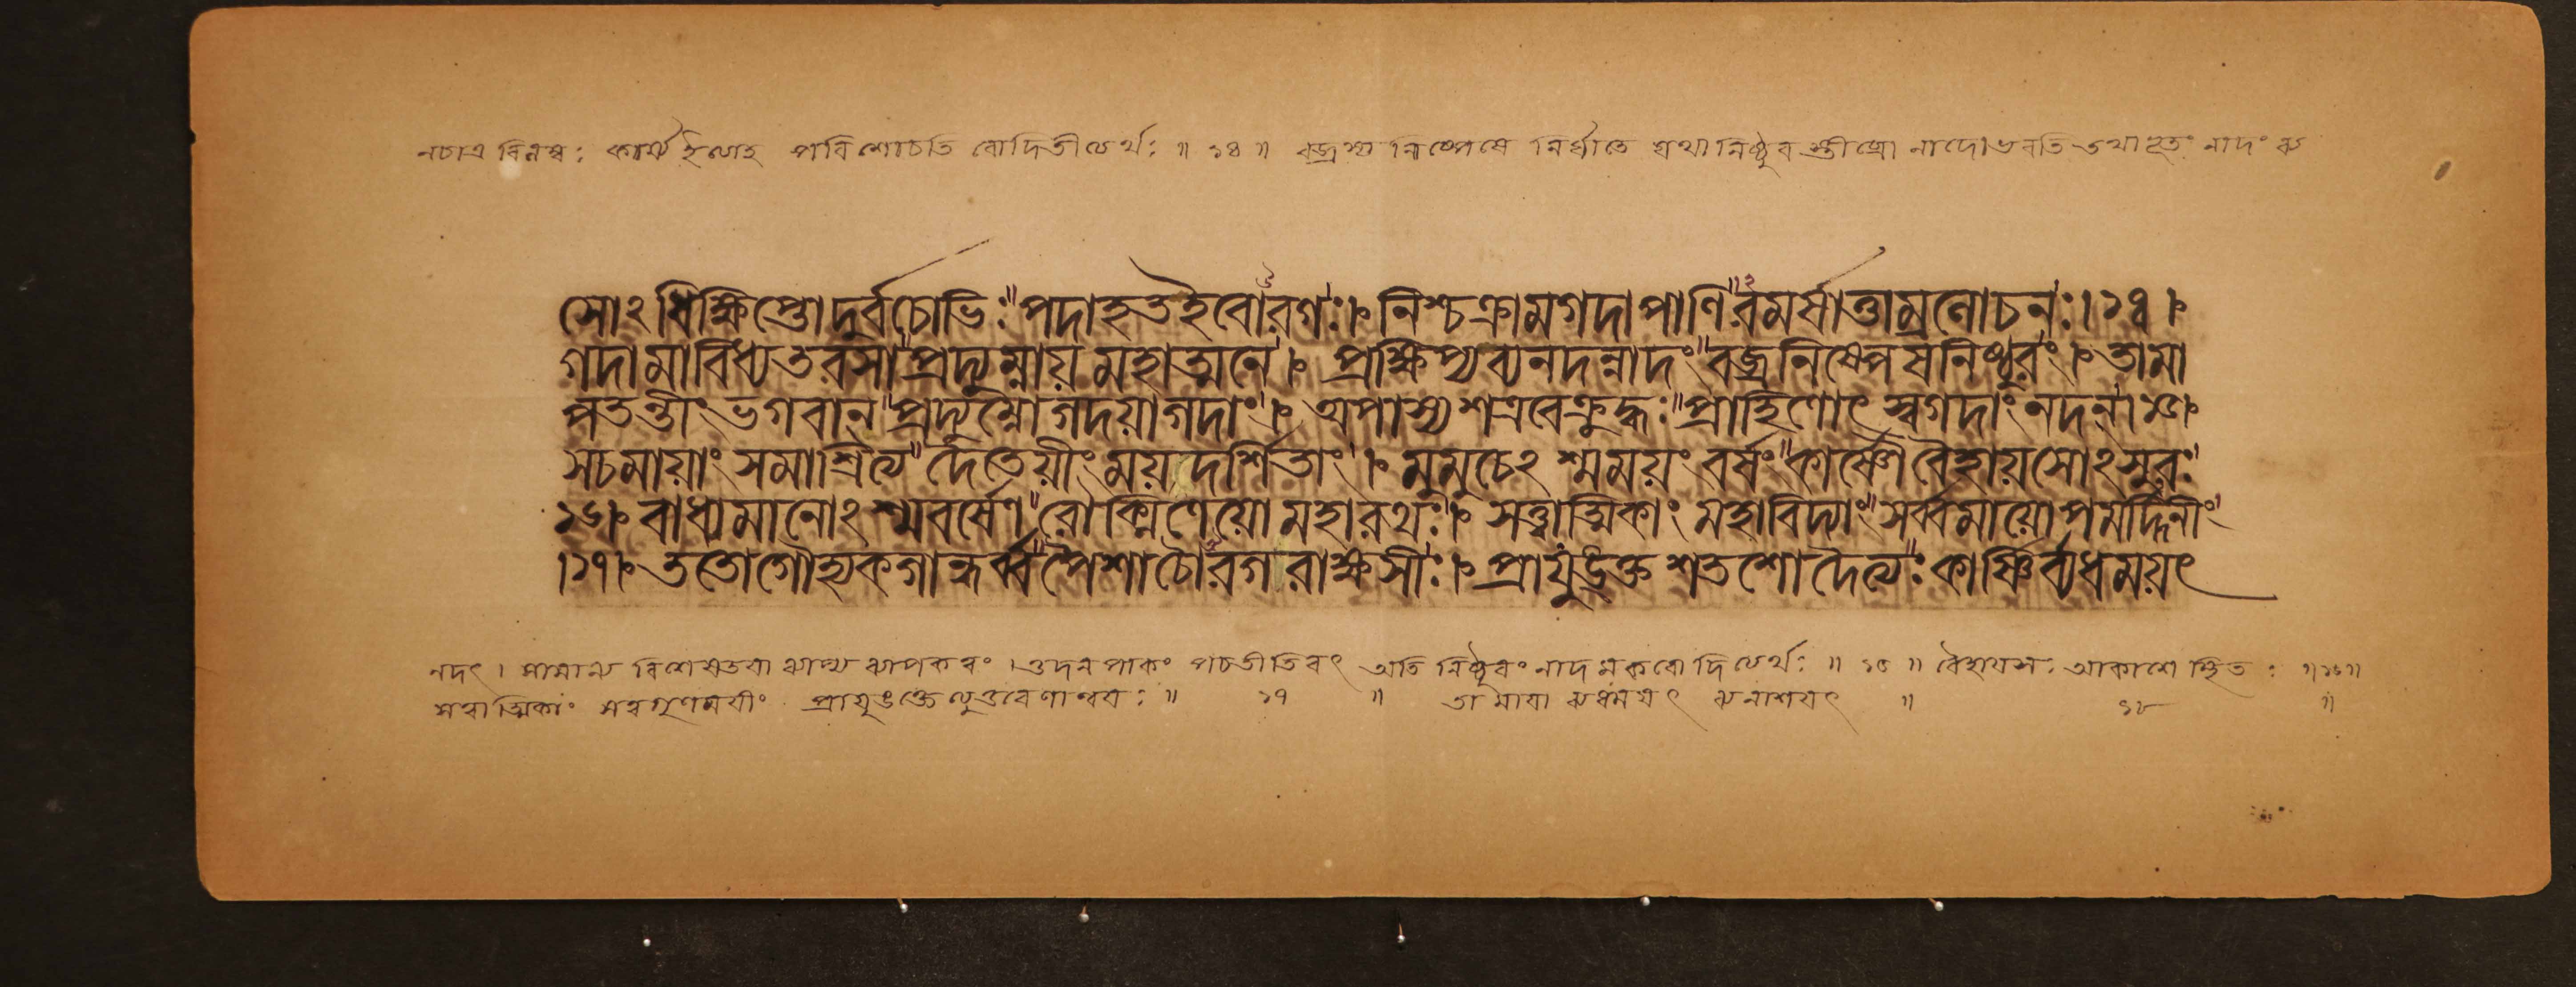 নচাত্র বিলম্বঃ কার্য্য ইত্যাহ পরিশোচতি রোদিতীত্যর্থঃ ॥ ১৪ ॥ বজ্রস্য নিষ্পেষে নির্ঘাতে যথা নিষ্ঠুর স্তীব্রো নাদো ভবতি তথাভূতং নাদং ব্য
সোঽধিক্ষিপ্তোদুর্বচোভিঃ॥পদাহতইবোরগঃ।নিশ্চক্রামগদাপাণি॥রমর্ষাত্তাম্রলোচনঃ।১৪।
গদামাবিধ্যতরসা॥প্রদ্যুম্নায়মহাত্মনে। প্রক্ষিপ্যব্যনদন্নাদং॥বজ্রনিষ্পেষনিষ্ঠুরং। তামা
পতন্তীং ভগবান্॥প্রদ্যুম্নোগদয়াগদাং। অপাস্যশত্রবেক্রুদ্ধঃ॥প্রাহিণোৎ স্বগদাং নদন্।১৫।
সচমায়াং সমাশ্রিত্য॥দৈতেয়ীং ময়দর্শিতাং। মুমুচেঽশ্মময়ং বর্ষং॥কার্ষ্ণৌবৈহায়সোঽসুরঃ॥
১৬। বাধ্যমানোঽশ্মবর্ষেণ॥রৌক্মিণেয়োমহারথঃ। সত্ত্বাত্মিকাং মহাবিদ্যাং॥সর্ব্বমায়োপমর্দ্দিনীং॥
।১৭। ততোগৌহ্যকগান্ধর্ব্ব॥পৈশাচোরগরাক্ষসীঃ। প্রাযুঙ্ক্তশতশোদৈত্যঃকার্ষ্ণির্ব্যধময়ৎ
নদৎ। সামান্য বিশেষতয়া ব্যাপ্য ব্যাপকত্বং । ওদনপাকং পচতীতিবৎ অতি নিষ্ঠুরং নাদমকরোদিত্যর্থঃ ॥ ১৫ ॥ বৈহায়সঃ আকাশে স্থিতঃ ॥১৬॥
সত্বাত্মিকাং সত্বগুণময়ীং প্রাযুঙক্তেত্যুত্তরেণান্বয়ঃ ॥ ১৭ ॥ তা মায়া ব্যধময়ৎ ব্যনাশয়ৎ ॥ ১৮ ॥